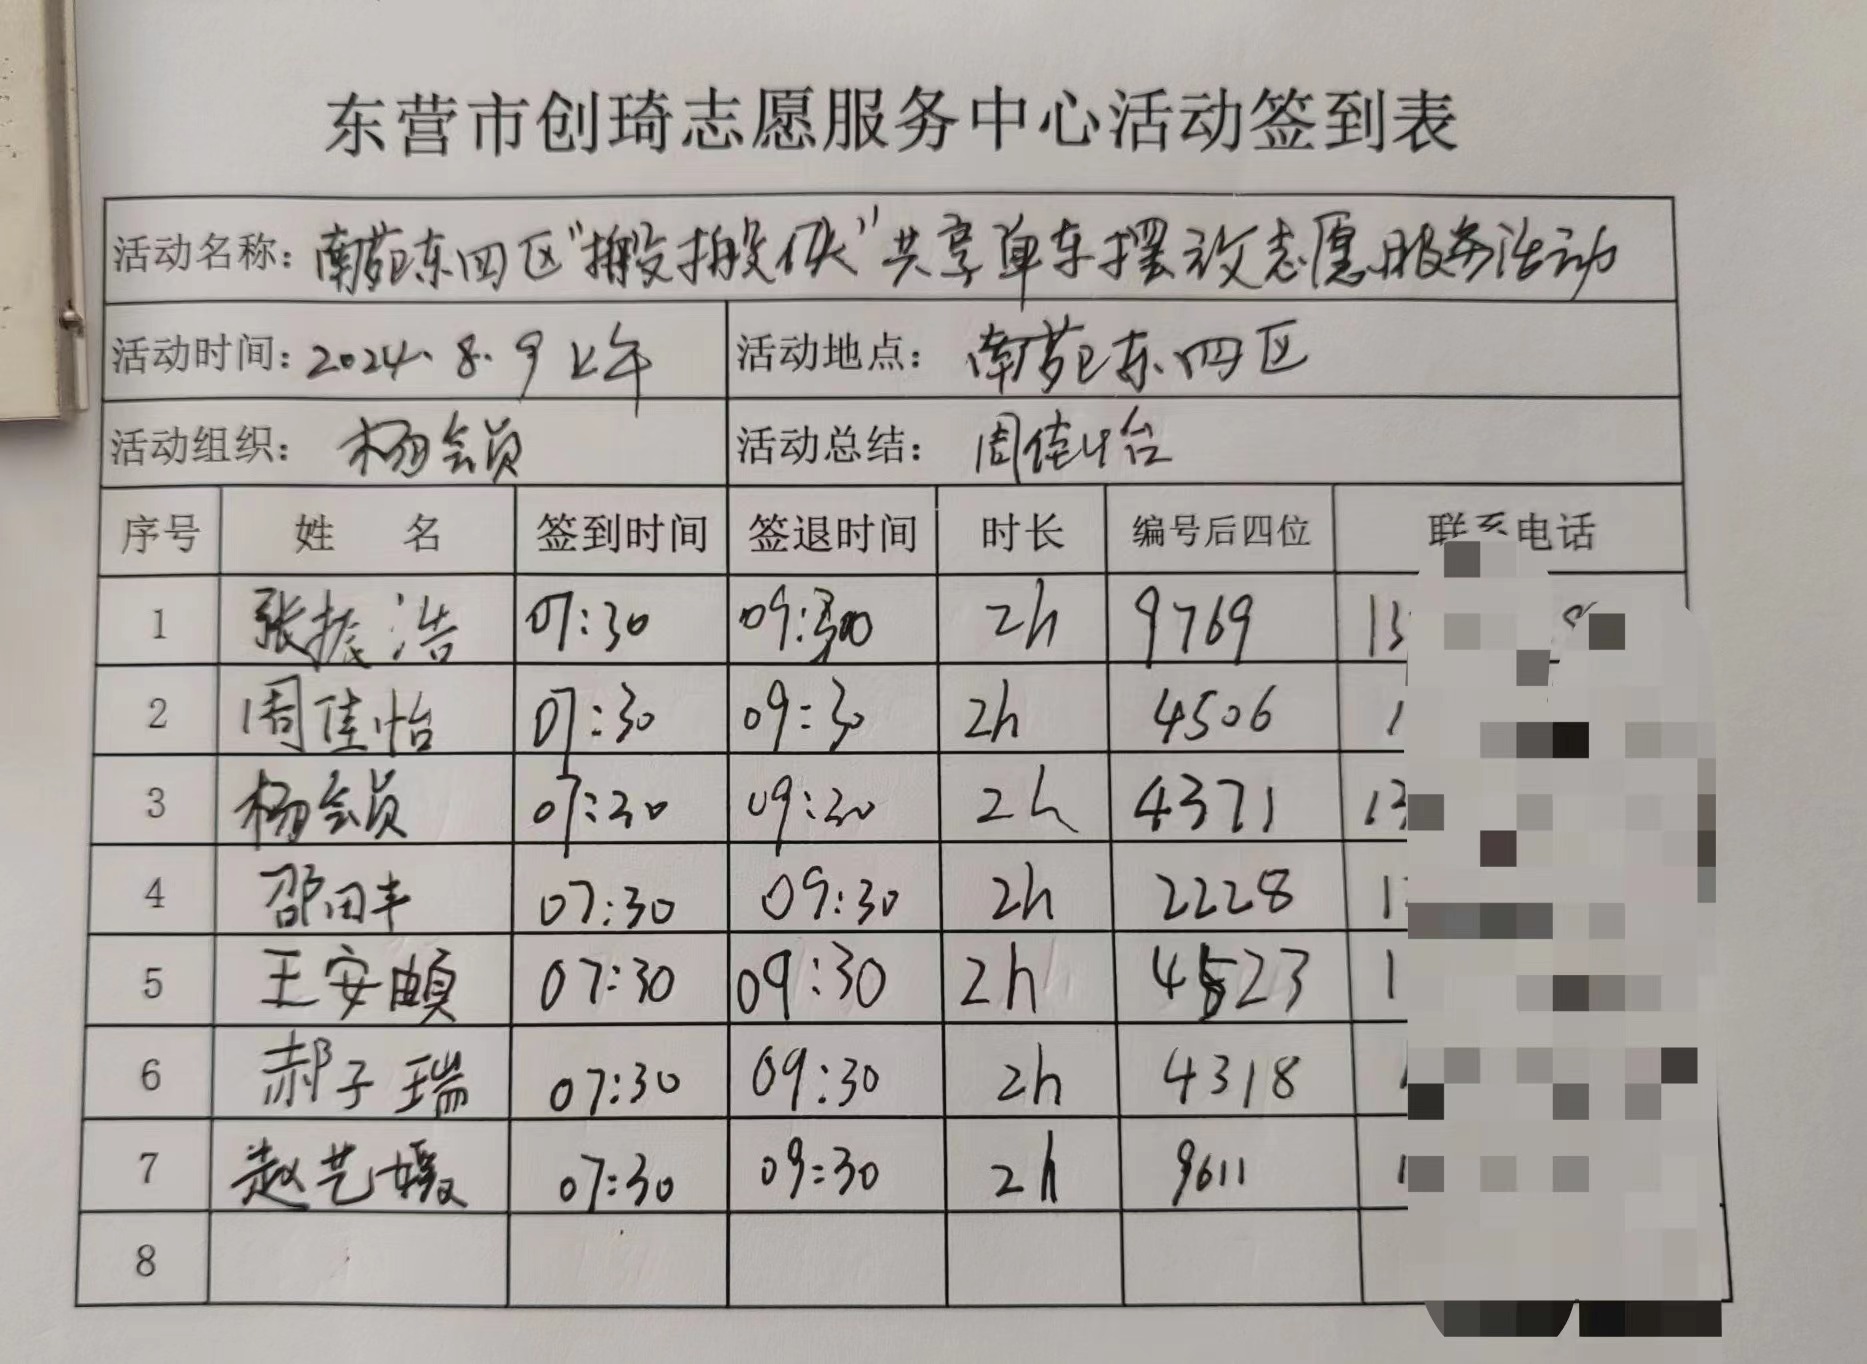 东营市创琦志愿服务中心活动签到表
活动名称：南苑东四区“搬搬侠”共享单车摆放志愿服务活动
活动时间：2024.8.9上午 活动地点：南苑东四区
活动组织：杨会员 活动总结：周佳怡
序号 姓 名 签到时间 签退时间 时长 编号后四位 联系电话
1 张振浩 07:30 09:30 2h 9769 13
2 周佳怡 07:30 09:30 2h 4506 1
3 杨会员 07:30 09:30 2h 4371 13
4 邵田丰 07:30 09:30 2h 2228 1
5 王安頔 07:30 09:30 2h 4523 1
6 郝子瑞 07:30 09:30 2h 4318
7 赵艺 07:30 09:30 2h 9611
8